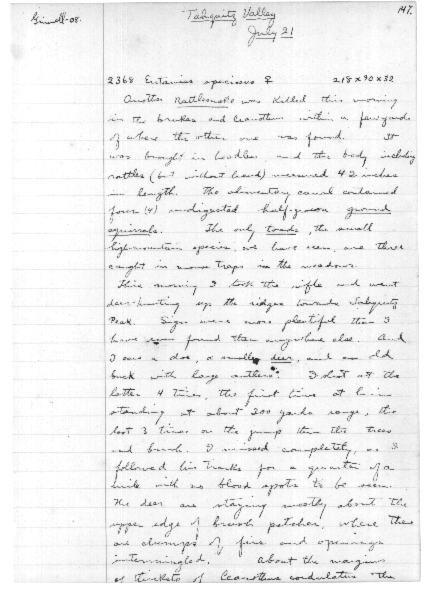 Grinnell-08.
Tahquitz Valley
147.
July 21
2368 Eutamias speciosus ♀ 218 x 90 x 32
Another Rattlesnake was killed this morning
in the brakes and Ceanothus within a few yards
of where the other one was found. It
was brought in headless, and the body including
rattles (but without head) measured 42 inches
in length. The alimentary canal contained
four (4) undigested half-grown ground
squirrels. The only toads, the small
high-mountain species, we have seen, are three
caught in mouse traps in the meadows.
This morning I took the rifle and went
deer-hunting up the ridges towards Tahquitz
Peak. Signs were more plentiful than I
have ever found them anywhere else. And
I saw a doe, a smaller deer, and an old
buck with large antlers. I shot at the
latter 4 times, the first time at him
standing at about 200 yards range, the
last 3 times on the jump thru the trees
and brush. I missed completely, as I
followed his tracks for a quarter of a
mile with no blood spots to be seen.
The deer are staying mostly about the
upper edge of brush patches, where there
are clumps of firs and openings
intermingled. About the margins
of thickets of Ceanothus cordulatus the